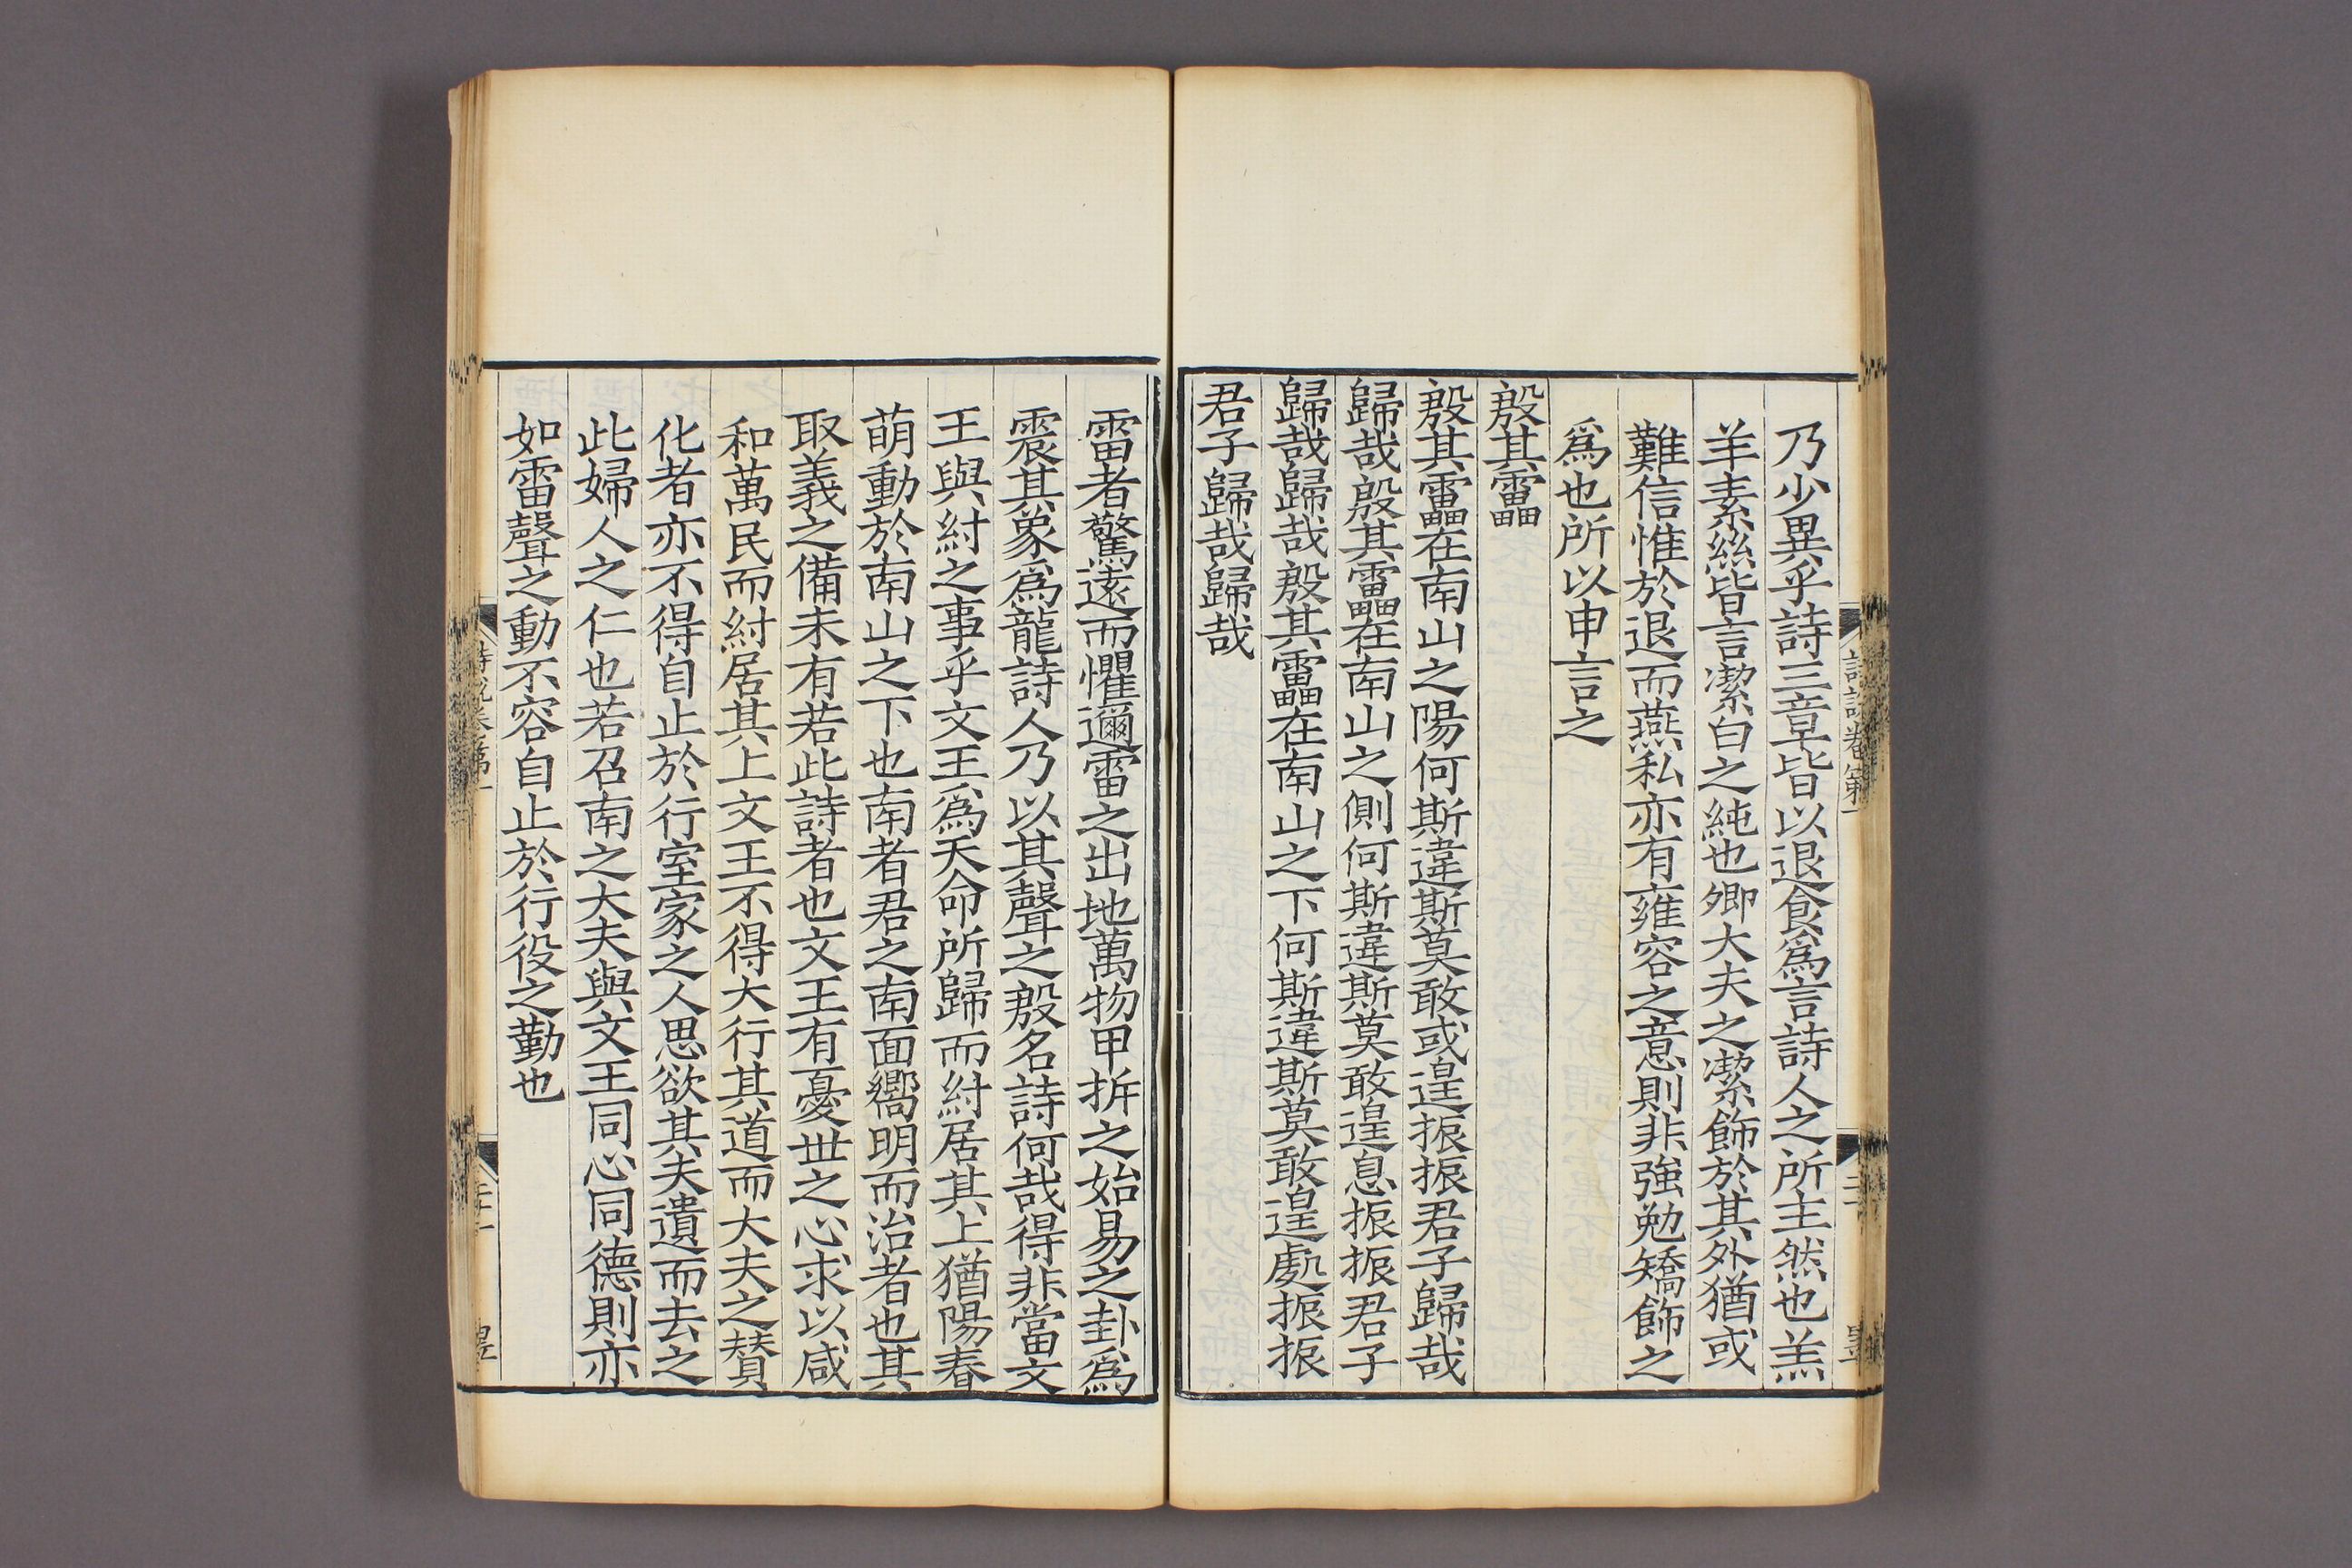 乃少異乎詩三章皆以退食爲言詩人之所主然也羔
羊素絲皆言潔白之純也卿大夫之潔飾於其外猶或
難信惟於退而燕私亦有雍容之意則非強勉矯飾之
爲也所以申言之
殷其靁
殷其靁在南山之陽何斯違斯莫敢或遑振振君子歸哉
歸哉殷其靁在南山之側何斯違斯莫敢遑息振振君子
歸哉歸哉殷其靁在南山之下何斯違斯莫敢遑處振振
君子歸哉歸哉
雷者驚遠而懼邇雷之出地萬物甲拆之始易之卦爲
震其象爲龍詩人乃以其聲之殷名詩何哉得非當文
王與紂之事乎文王爲天命所歸而紂居其上猶陽春
萌動於南山之下也南者君之南面嚮明而治者也其
取義之備未有若此詩者也文王有憂世之心求以咸
和萬民而紂居其上文王不得大行其道而大夫之賛
化者亦不得自止於行室家之人思欲其夫遺而去之
此婦人之仁也若召南之大夫與文王同心同德則亦
如雷聲之動不容自止於行役之勤也
詩說卷第一